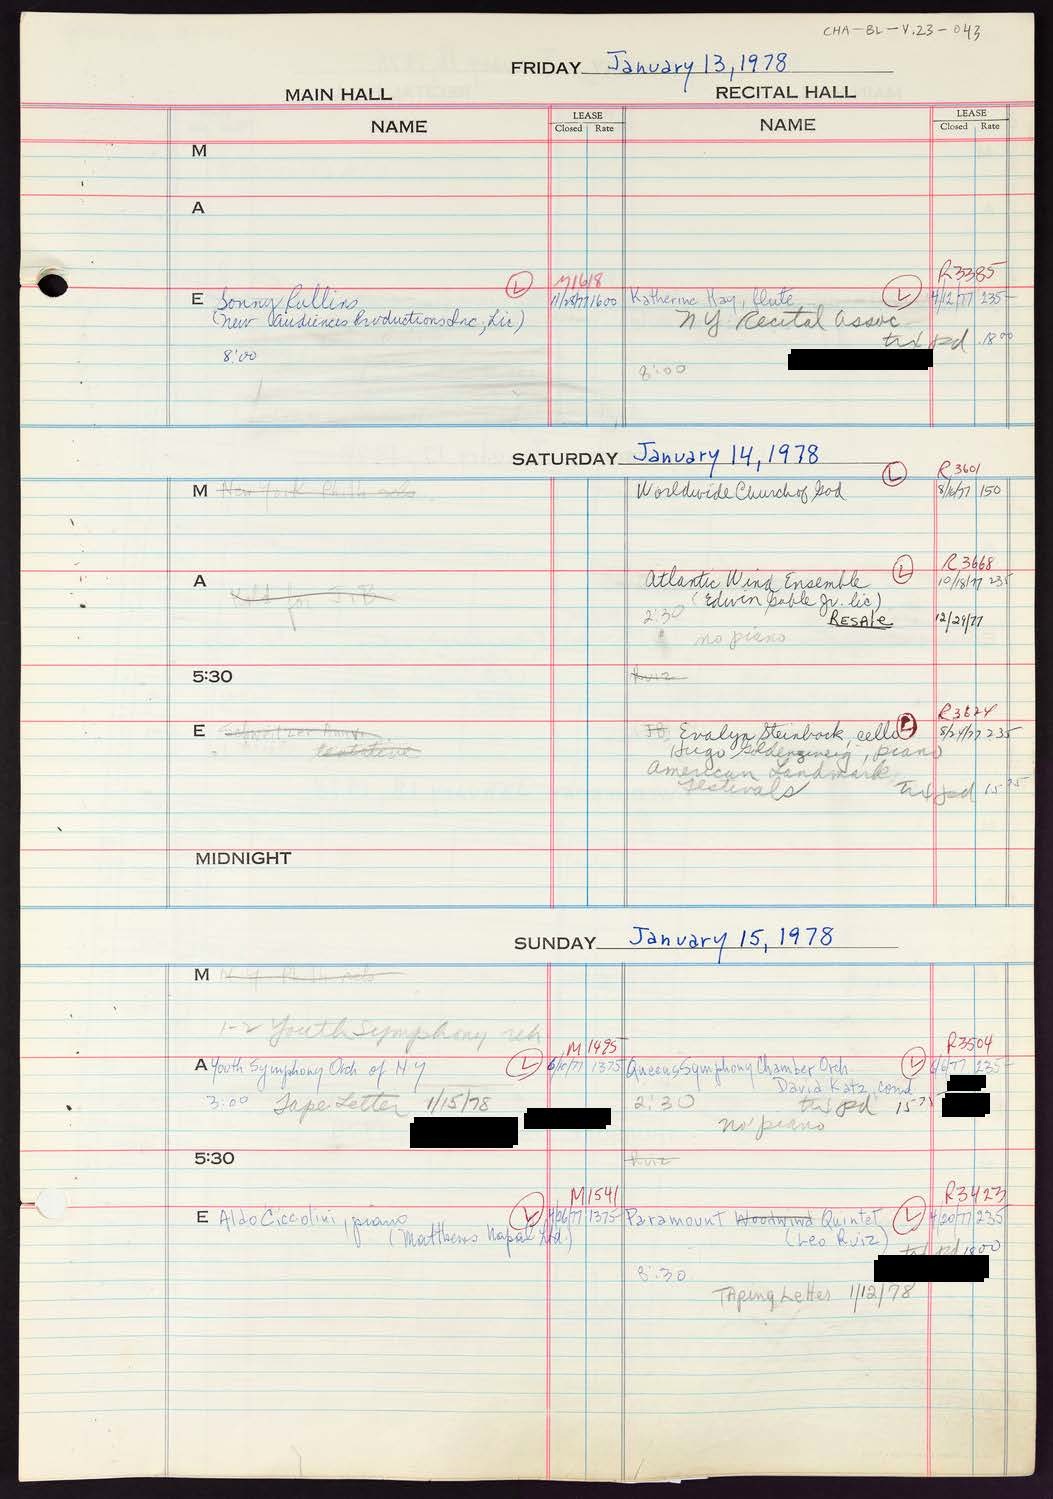 CHA-BL-V.23-043
FRIDAY January 13, 1978
MAIN HALL RECITAL HALL
NAME LEASE Closed Rate NAME LEASE Closed Rate
M
A
M1618 R3385
E Sonny Rollins L 11/28/77 1600 Katherine Hay, flute L 4/12/77 235-
(New Audiences Productions Inc, Lic) N.Y. Recital Assoc
txt pd 18 00
8:00
8:00
SATURDAY January 14, 1978
L R3601
M New York Phil Worldwide Church of God 8/16/77 150
R3668
A Atlantic Wind Ensemble L 10/18/77 235
Hold for (Edwin Gable Jr. lic)
2:30 RESALE 12/29/77
no piano
5:30 Ruiz
R3624
E JB Evalyn Steinbock, cello L 8/24/77 235
tentative Hugo Goldenzweig, piano
American Landmark
Festivals txt pd 15 75
MIDNIGHT
SUNDAY January 15, 1978
M N Y Phil
1-2 Youth Symphony reh
M1495 R3504
A Youth Symphony Orch of NY L 1375 Queens Symphony Chamber Orch L 235-
David Katz, cond
3:00 Tape Letter 1/15/78 2:30 txt pd 15 75
no piano
5:30 Ruiz
M1541 R3423
E Aldo Ciccolini, piano L 4/26/77 1375- Paramount Woodwind Quintet L 4/20/77 235
(Matthews Napal Ltd.) (Leo Ruiz)
txt pd 18 00
8:30
Taping Letter 1/12/78